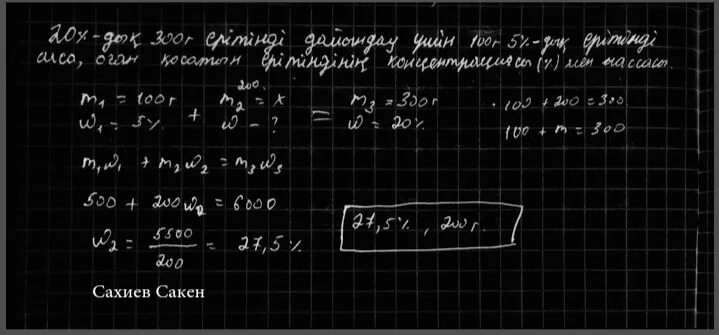 20%-дық 300г ерітінді дайындау үшін 100г 5%-дық ерітінді
алса, оған қосатын ерітіндінің концентрациясы (%) мен массасы.
m₁ = 100г + m₂ = x 200 = m₃ = 300г · 100 + 200 = 300
ω₁ = 5% ω - ? ω = 20% 100 + m = 300
m₁ω₁ + m₂ω₂ = m₃ω₃
500 + 200ω₂ = 6000
ω₂ = 5500/200 = 27,5%
27,5%, 200г.
Сахиев Сакен